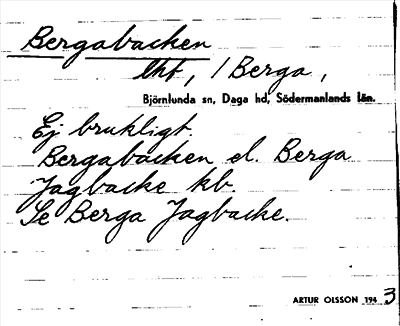 Bergabacken
lht, / Berga,
Björnlunda sn, Daga hd, Södermanlands län.
Ej brukligt.
Bergabacken el. Berga
Jagbacke kb.
Se Berga Jagbacke.
ARTUR OLSSON 194 3